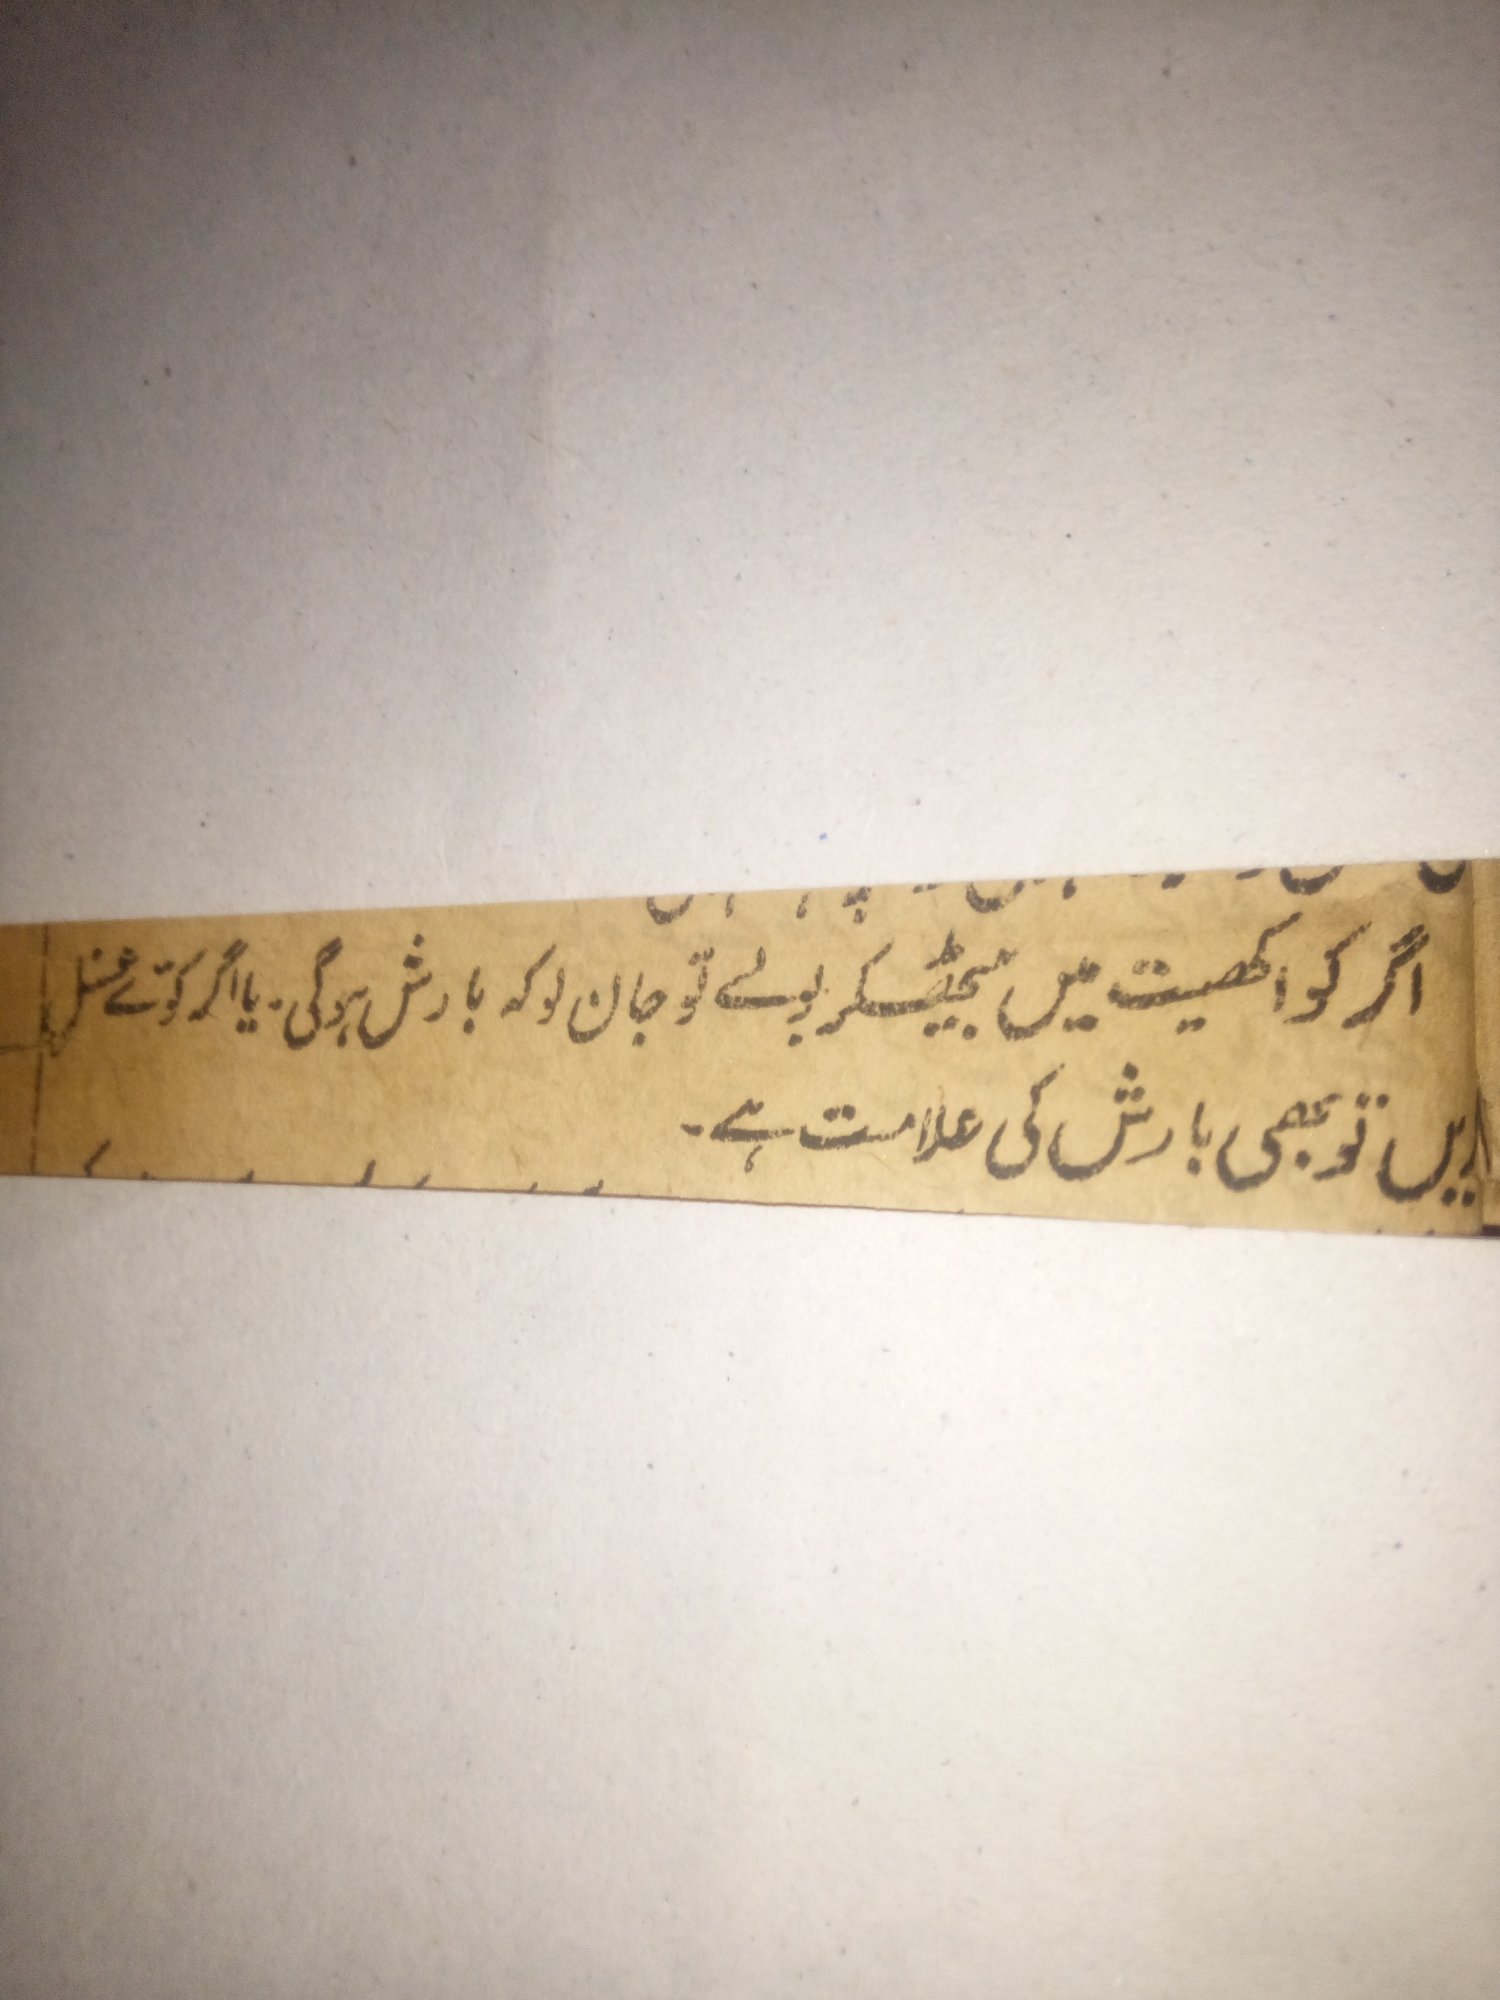 اگر کوا کھیت میں بیٹھ کر بولے تو جان لو کہ بارش ہوگی۔ یا اگر کوّے غسل
کریں تو بھی بارش کی علامت ہے۔